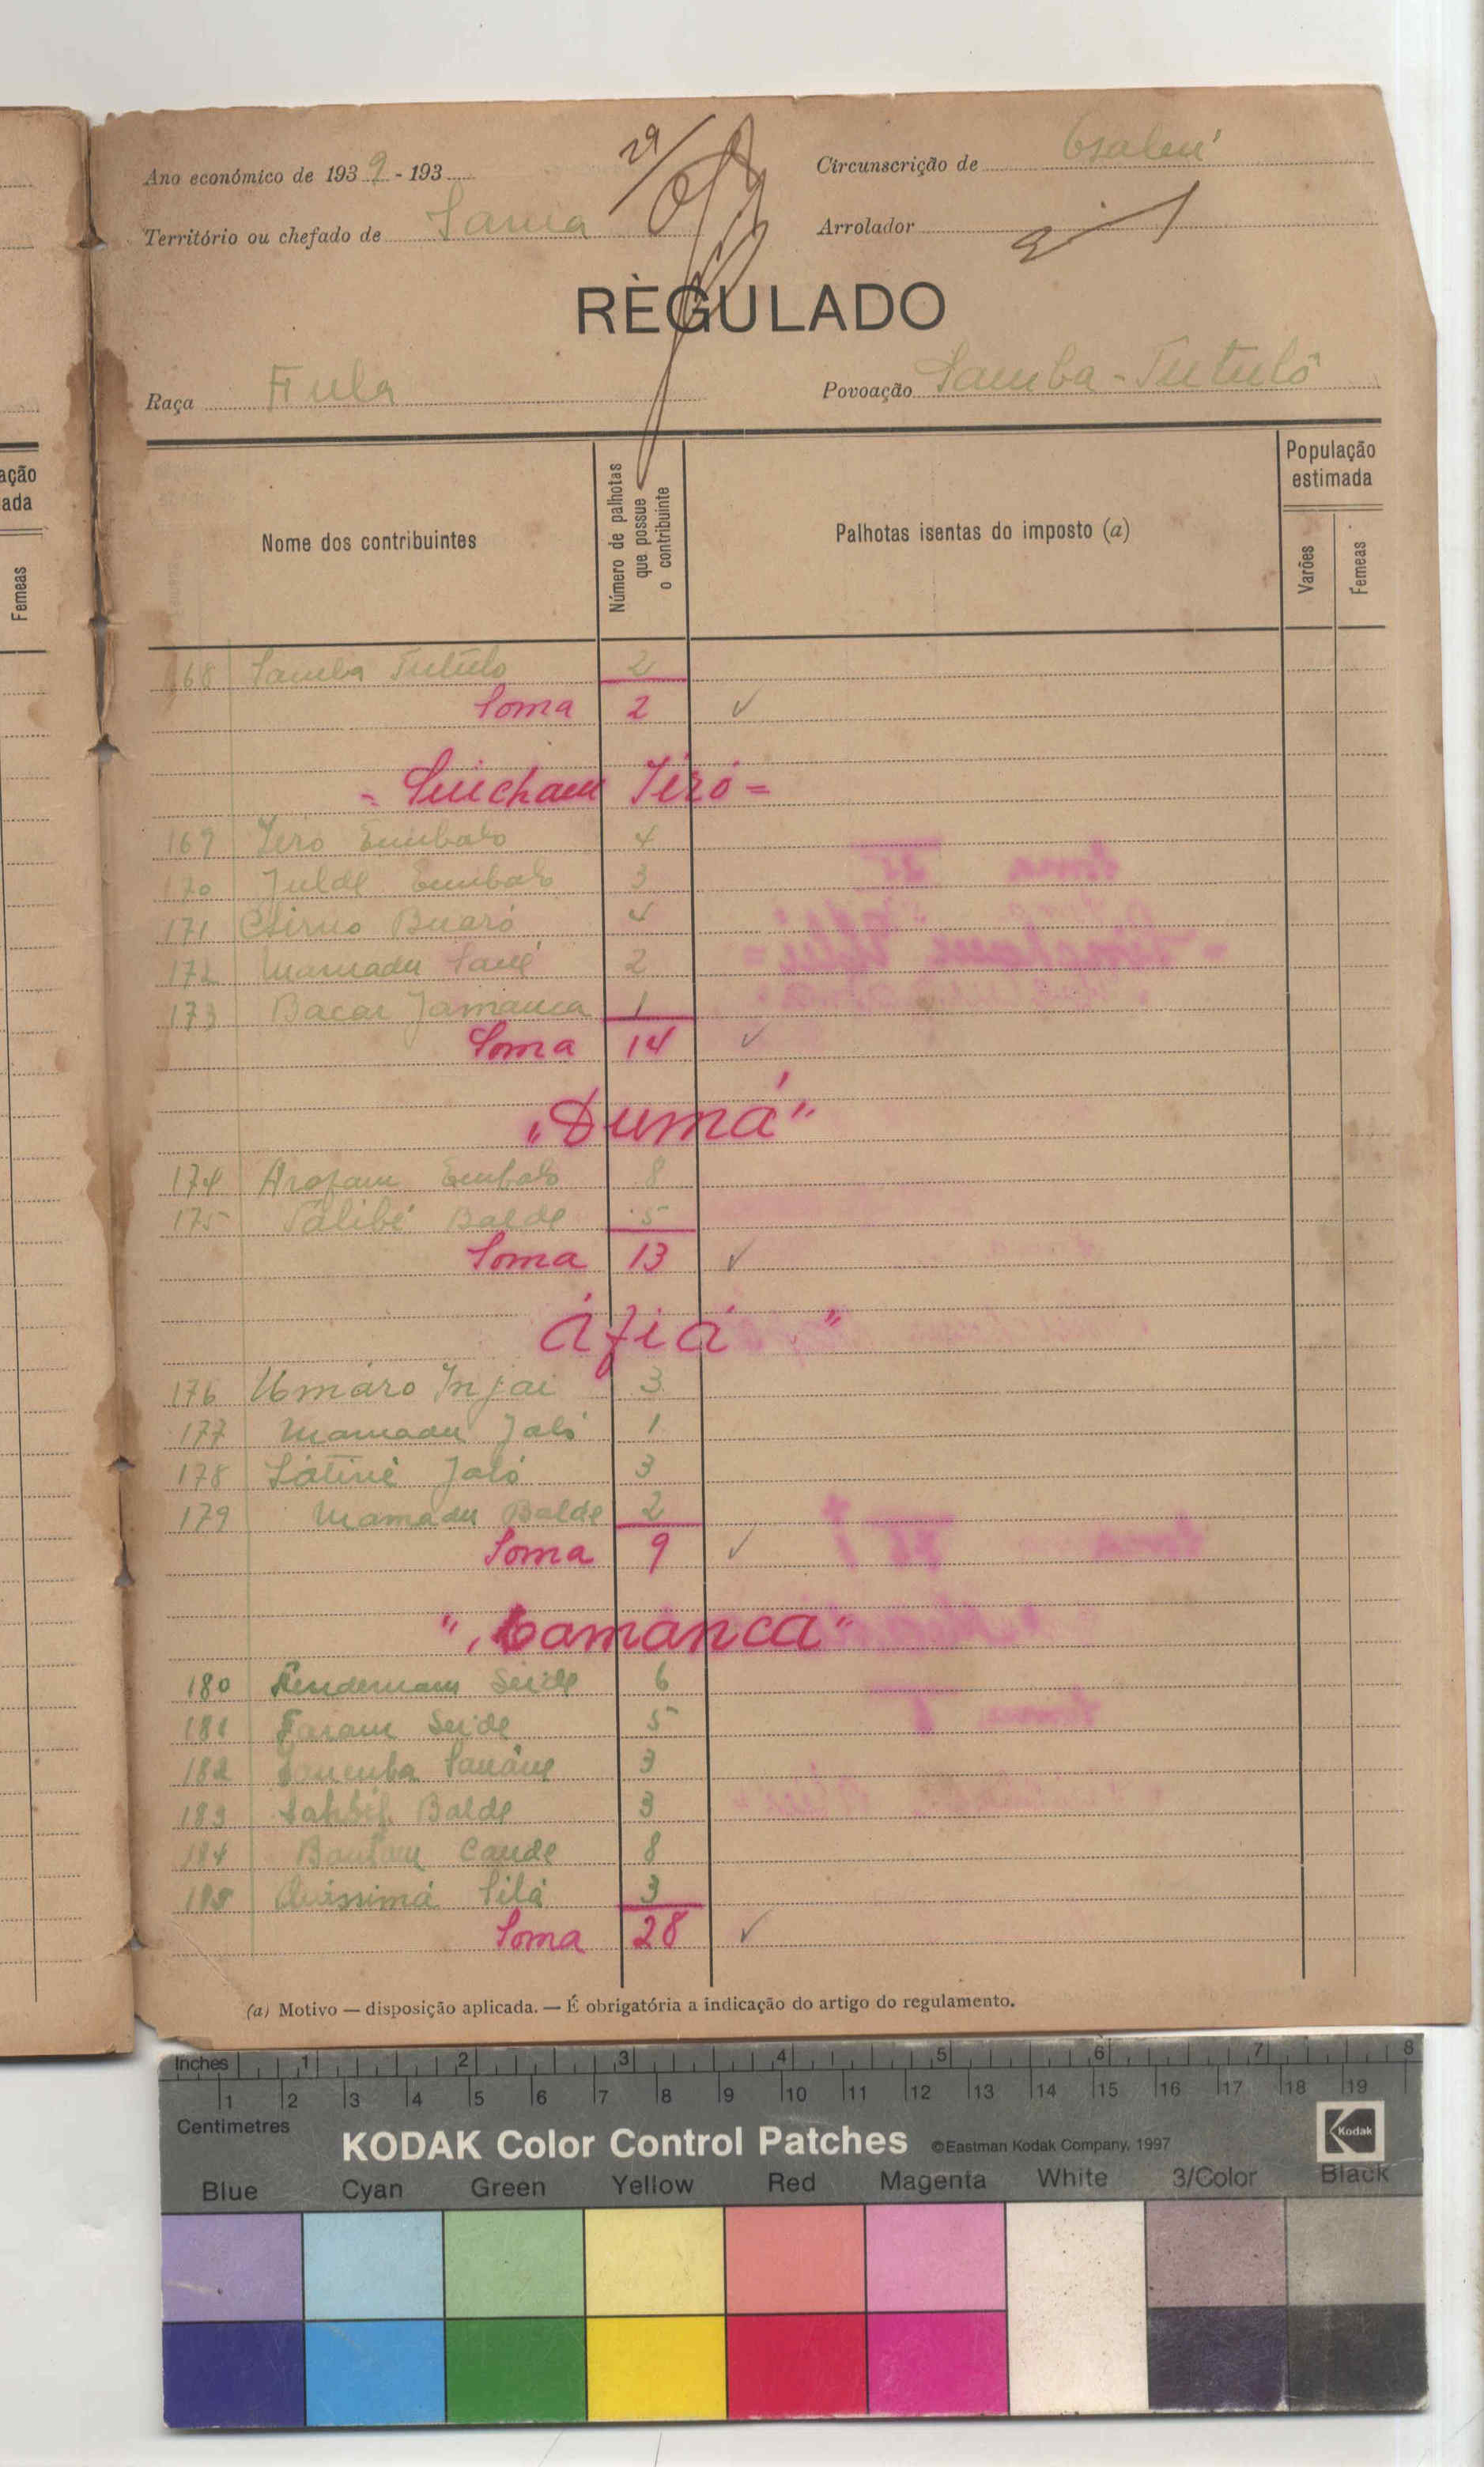 Ano económico de 193 9 - 193
Circunscrição de
Território ou chefado de
Arrolador
RÈGULADO
Raça Fula
Povoação Samba-Tutulô
Nome dos contribuintes
Número de palhotas que possue o contribuinte
Palhotas isentas do imposto (a)
População estimada
Varões
Femeas
168 Samba Tutulo 2
Soma 2 ✓
= Sincham Jeró =
169 Jeró Embaló 4
170 Julde Embaló 3
171 Buaró 4
172 Mamadu Sané 2
173 Bacar Jamanca 1
Soma 14 ✓
"Dumá"
174 Arafam Embaló 8
175 Talibé Balde 5
Soma 13 ✓
Áfiá "
176 Umáro Injai 3
177 Mamadu Jaló 1
178 Jaló 3
179 Mamadu Balde 2
Soma 9 ✓
"Camanca"
180 Seide 6
181 Faram Seide 5
182 3
183 Balde 3
184 Cande 8
185 Quissimá Silá 3
Soma 28 ✓
(a) Motivo — disposição aplicada. — É obrigatória a indicação do artigo do regulamento.
ação
ada
Femeas
Inches 1 2 3 4 5 6 7 8
1 2 3 4 5 6 7 8 9 10 11 12 13 14 15 16 17 18 19
Centimetres
KODAK Color Control Patches ©Eastman Kodak Company, 1997
Kodak
Blue Cyan Green Yellow Red Magenta White 3/Color Black